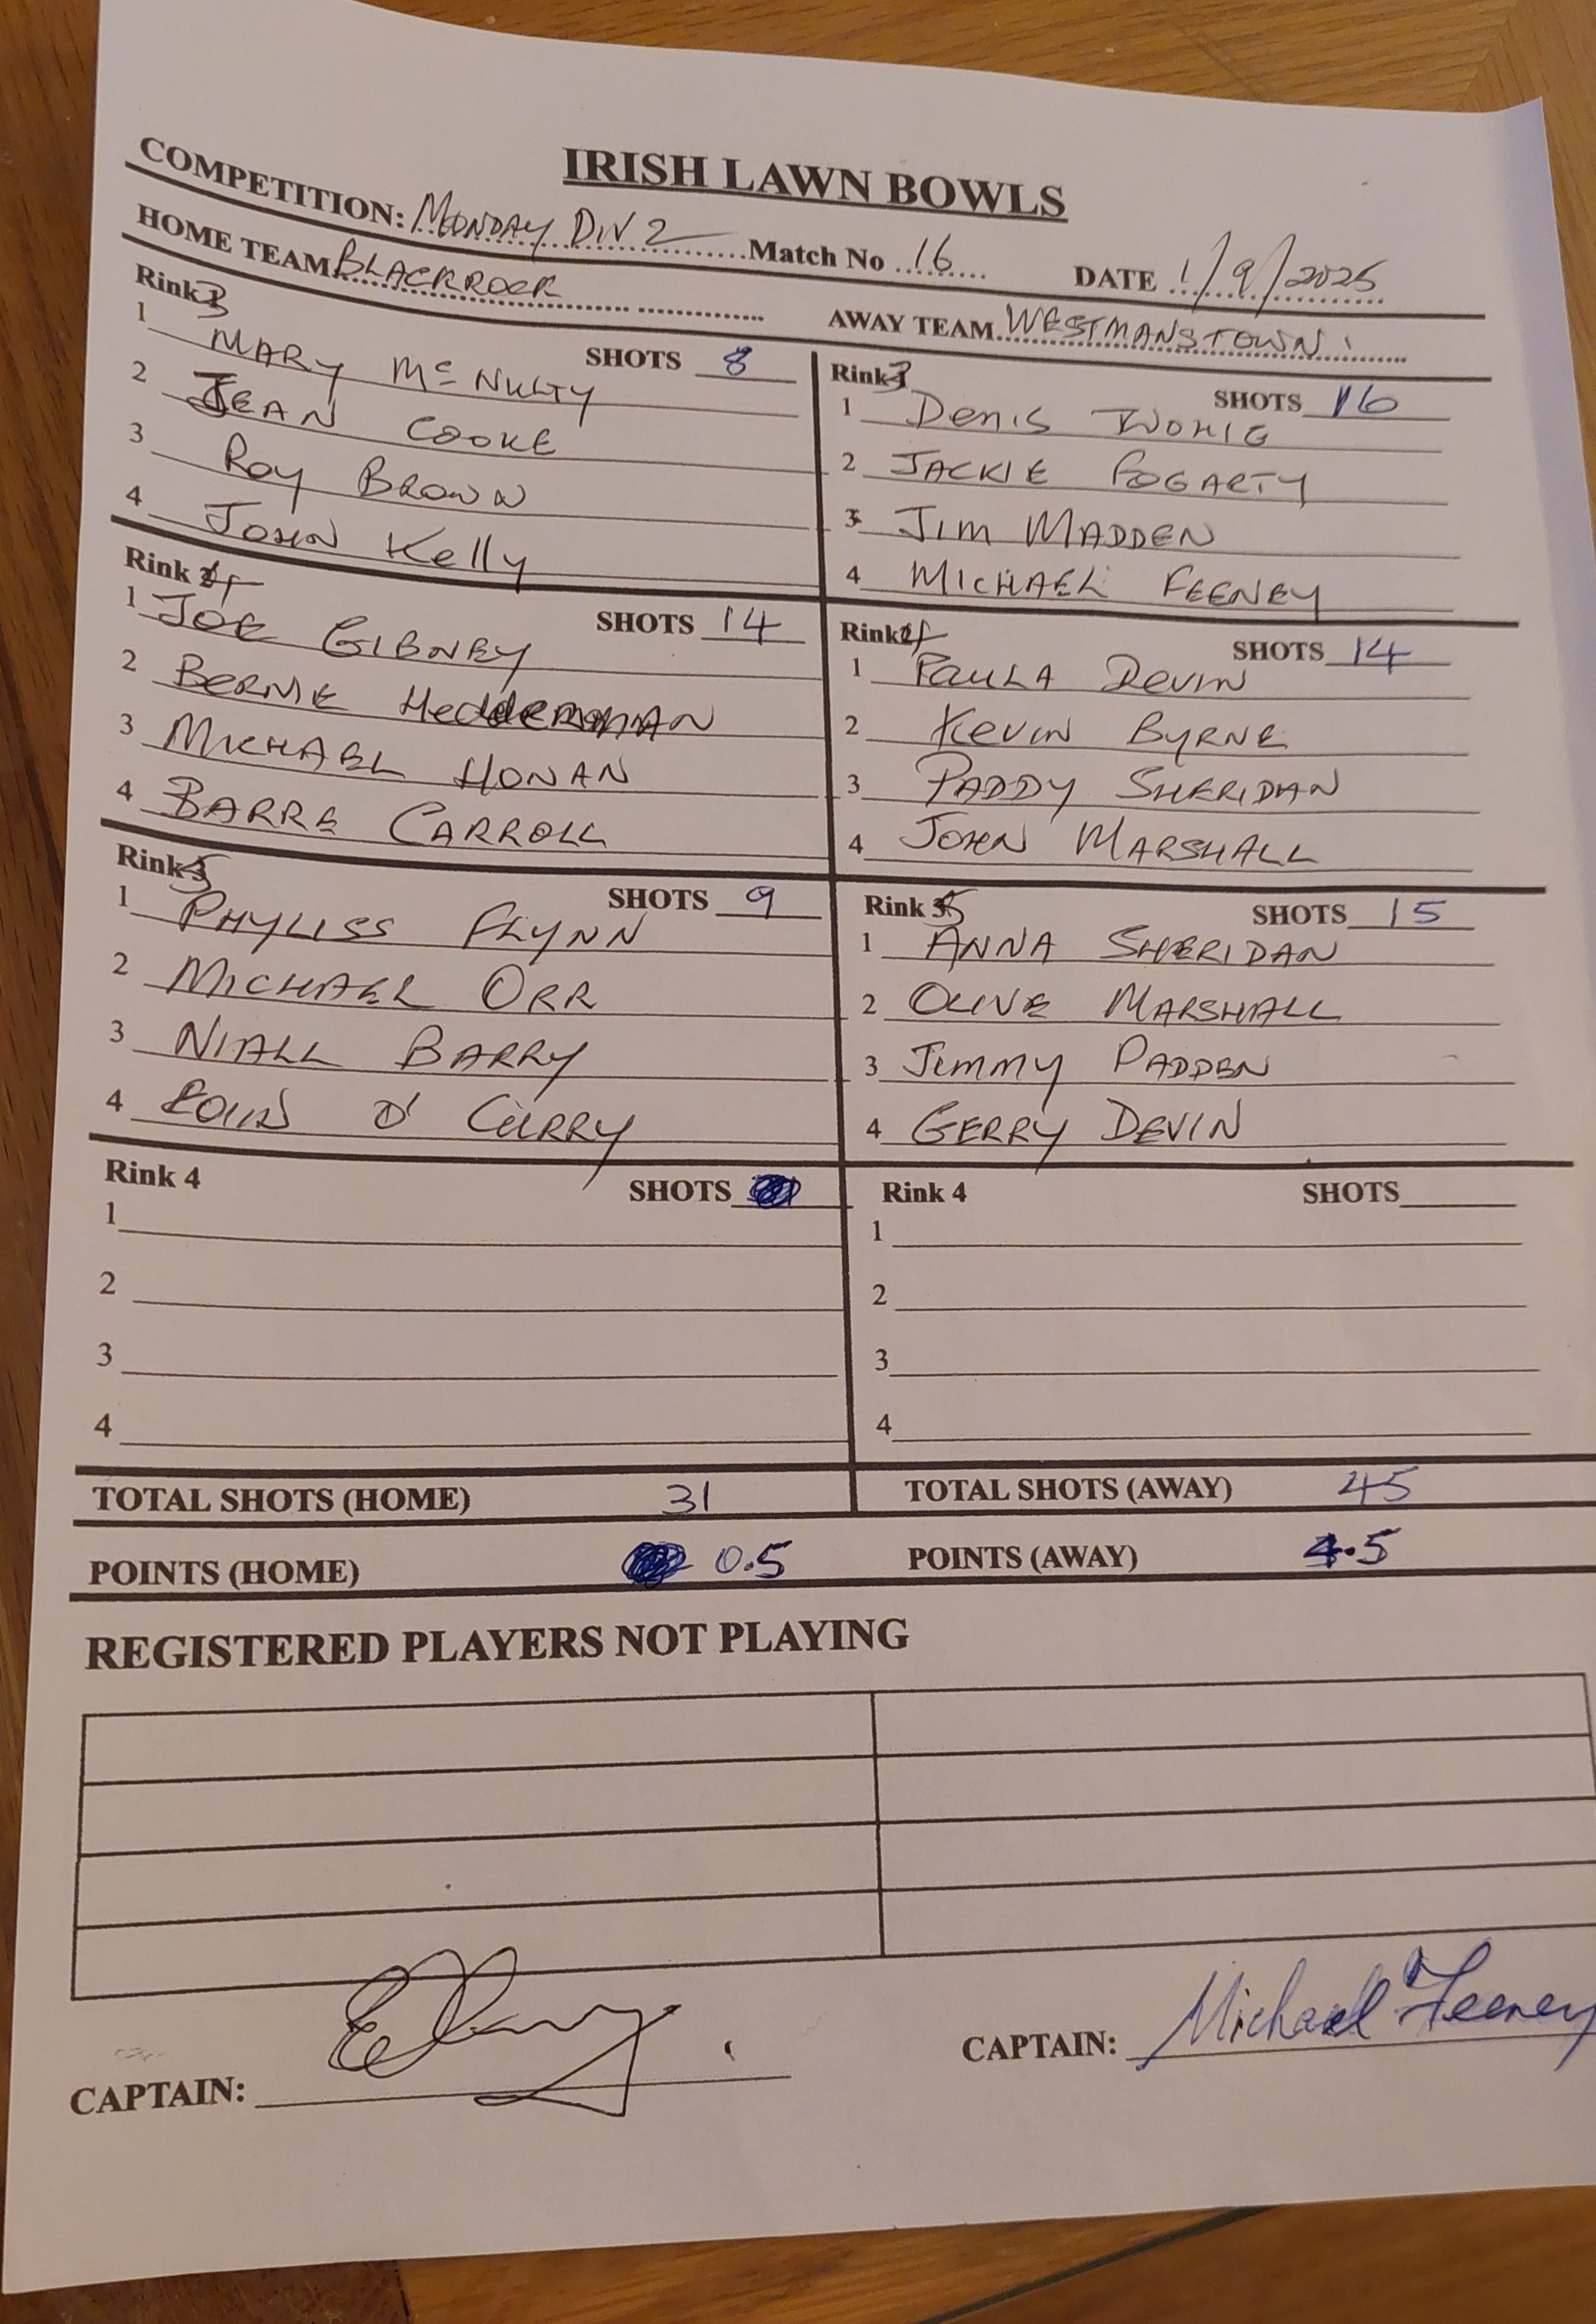 IRISH LAWN BOWLS
COMPETITION: MONDAY DIV 2 Match No 16 DATE 1/9/2025
HOME TEAM BLACKROCK AWAY TEAM WESTMANSTOWN
Rink 3 SHOTS 8
1 MARY McNULTY
2 JEAN COOKE
3 ROY BROWN
4 JOHN Kelly
Rink 3 SHOTS 16
1 DENIS TWOHIG
2 JACKIE FOGARTY
3 JIM MADDEN
4 MICHAEL FEENEY
Rink 4 SHOTS 14
1 JOE GIBNEY
2 BERNIE HEDDERMAN
3 MICHAEL HONAN
4 BARRE CARROLL
Rink 4 SHOTS 14
1 PAULA DEVIN
2 KEVIN BYRNE
3 PADDY SHERIDAN
4 JOHN MARSHALL
Rink 5 SHOTS 9
1 PHYLISS FLYNN
2 MICHAEL ORR
3 NIALL BARRY
4 O'CURRY
Rink 5 SHOTS 15
1 ANNA SHERIDAN
2 OLIVE MARSHALL
3 JIMMY PADDEN
4 GERRY DEVIN
Rink 4 SHOTS
1
2
3
4
Rink 4 SHOTS
1
2
3
4
TOTAL SHOTS (HOME) 31 TOTAL SHOTS (AWAY) 45
POINTS (HOME) 0.5 POINTS (AWAY) 4.5
REGISTERED PLAYERS NOT PLAYING
CAPTAIN: CAPTAIN: Michael Feeney